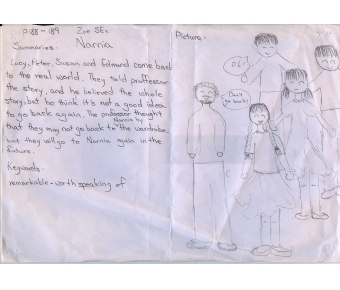 P.188 ~ 189
Zoe 5Ec
Narnia
Summaries:
Lucy, Peter, Susan and Edmund come back
to the real world. They told proffessor
the story, and he believed the whole
story, but he think it's not a good idea
to go back again. The professor thought
that they may not go back to Narnia by the wardrobe,
but they will go to Narnia again in the
future.
Keywords:
remarkable - worth speaking of
Picture:
Don't
go back!